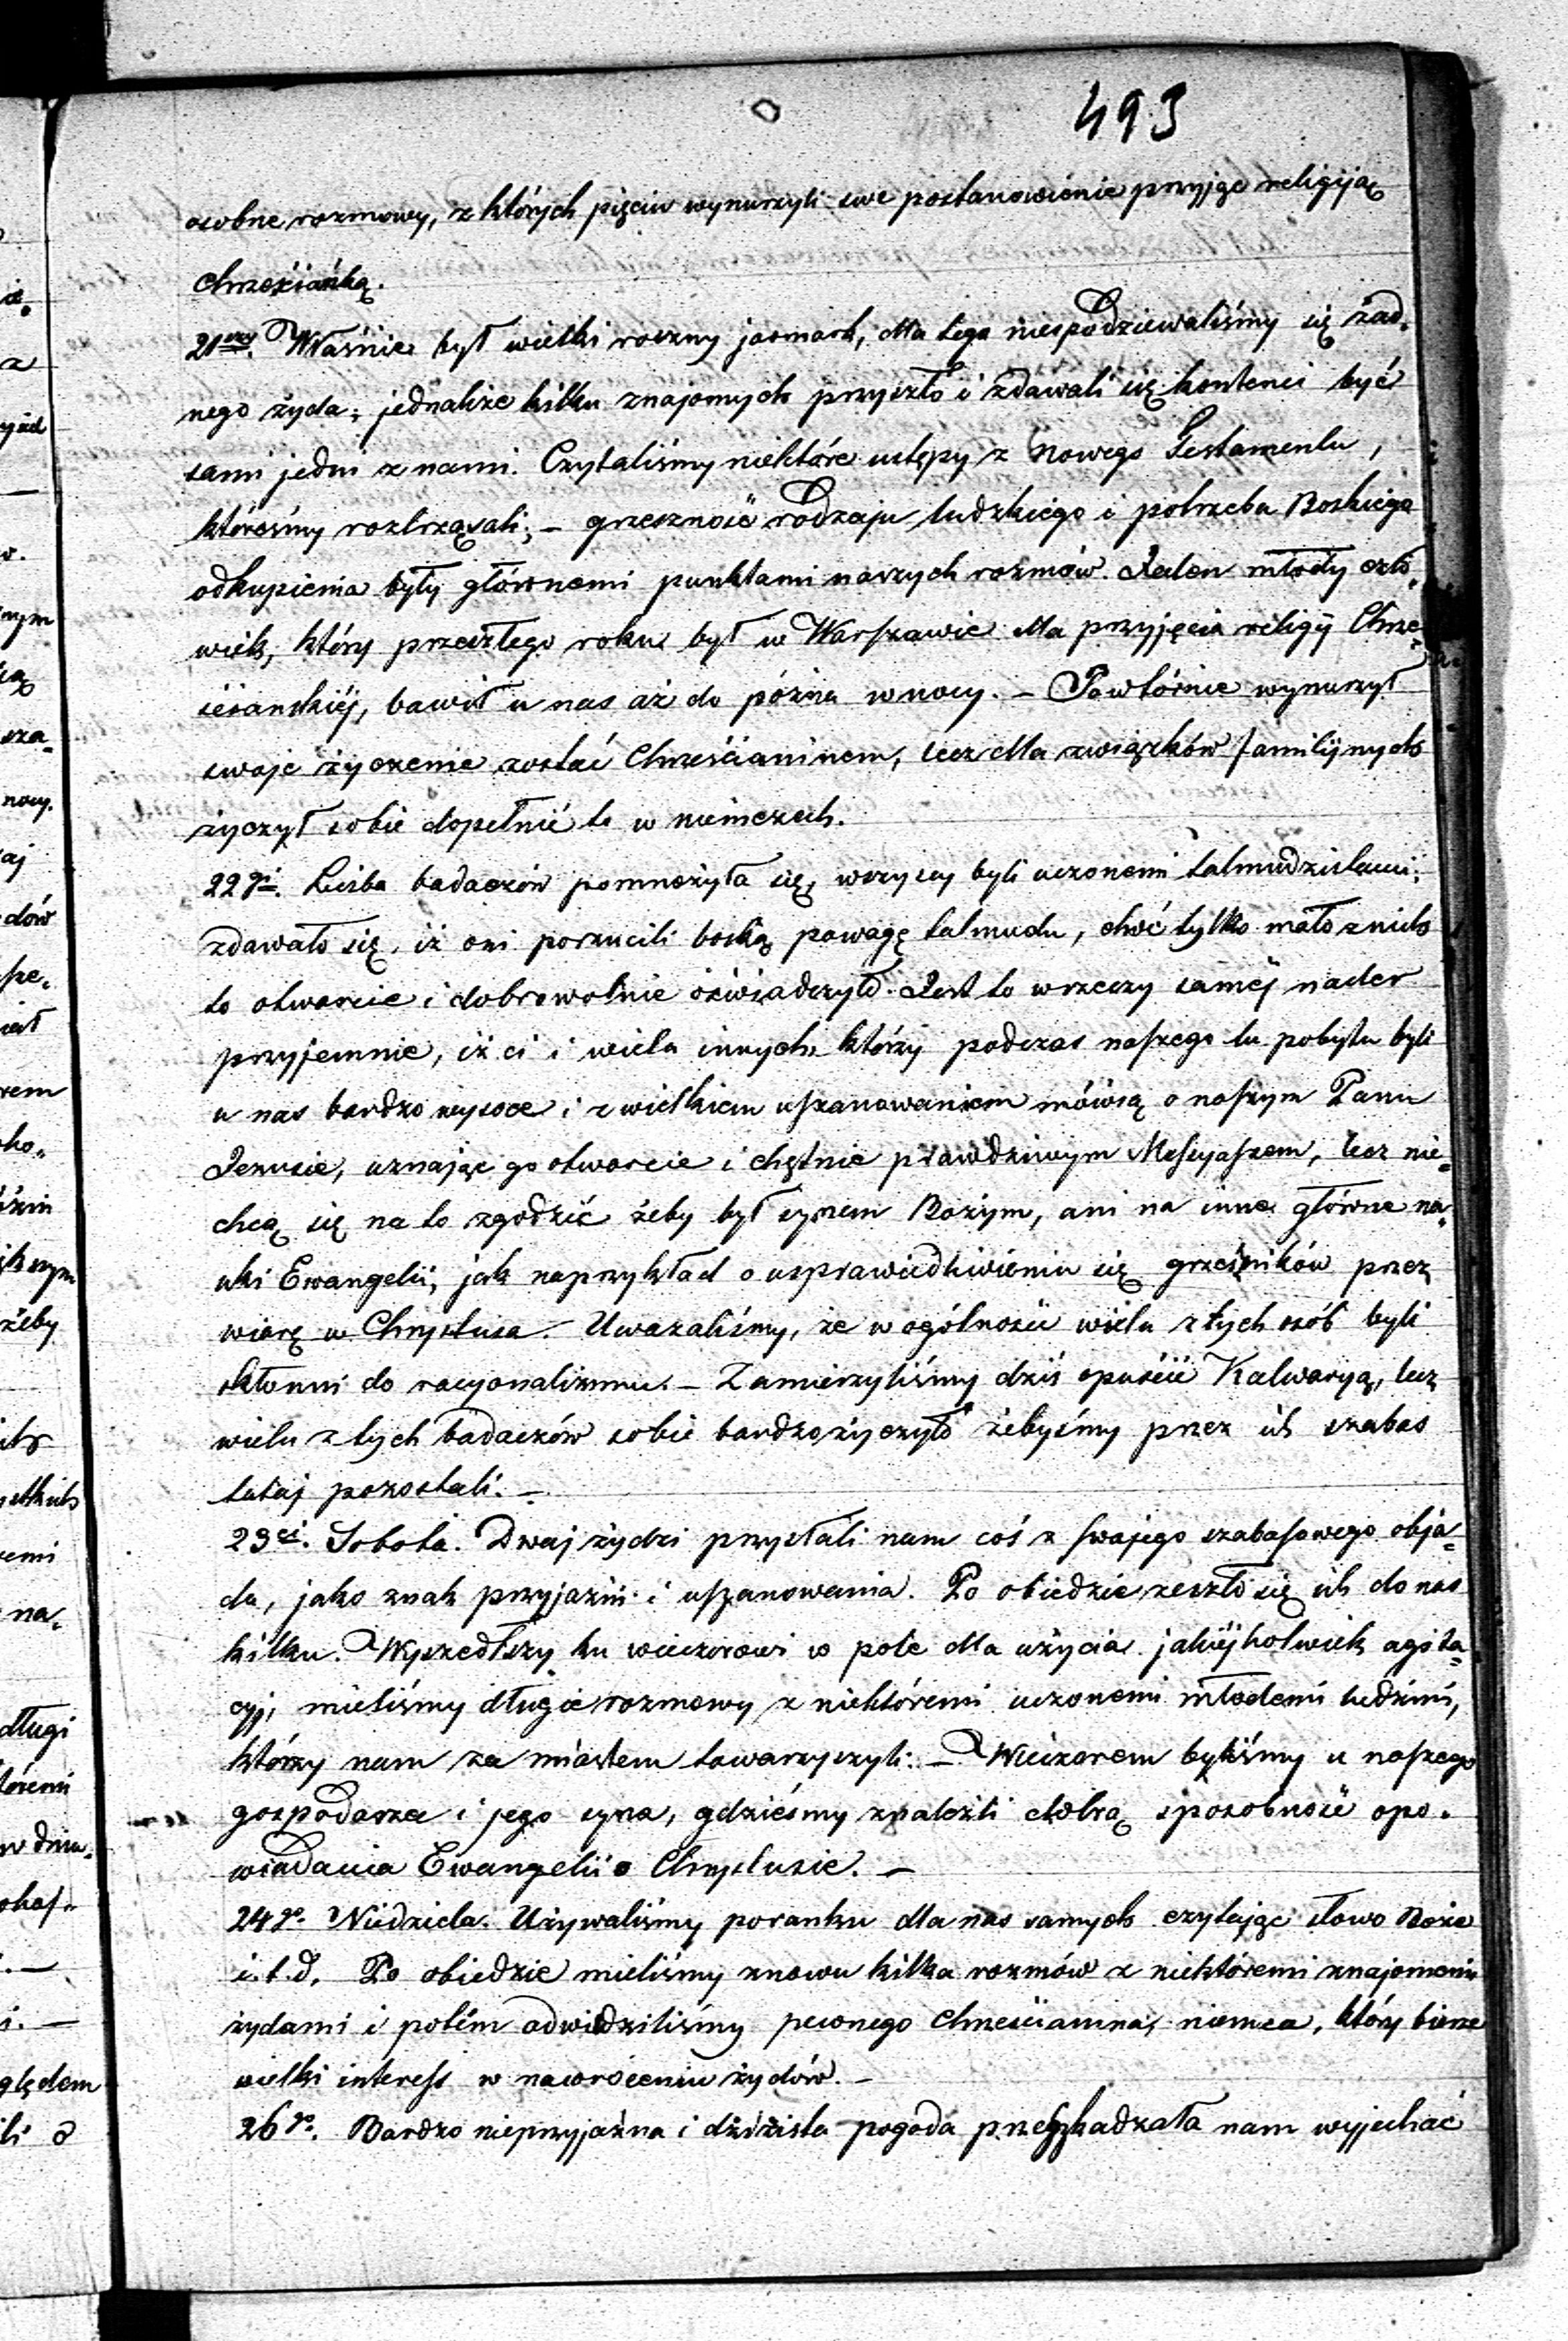 493
osobne rozmowy, z których pięciu wynurzyli swe postanowienie przyjąc religiją
chrześciańką.
21wszy. Właśnie był wielki roczny jaomark, dla tego niespodziewaliśmy się żad„
nego żyda; jednakże kilku znajomych przyszło i zdawali się kontenci być
sami jedni z nami. Czytaliśmy niektóre ustępy z Nowego Testamentu,
któreśmy roztrząsali; – grzeszność rodzaju ludzkiego i potrzeba Boskiego
odkupienia były głównemi punktami naszych rozmów. Jeden młody czło„
wiek, który przeszłego roku był w Warszawie dla przyjęcia religij Chrze„
ściańskiéj, bawił u nas aż do późna w nocy. – Powtórnie wynurzył
swoje życzenie zostać Chrześcianinem, lecz dla związków familijnych
życzył sobie dopełnić to w niemczech.
22gi. Liczba badaczów pomnożyła się, wszyscy byli uczonemi talmudzistami;
zdawało się, iż oni porzucili boską powagę talmudu, choć tylko mało z nich
to otwarcie i dobrowolnie oświadczyło. Jest to w rzeczy saméj nader
przyjemnie, iż ci i wielu innych którzy podczas naszego tu pobytu byli
u nas bardzo wysoce i z wielkiem uszanowaniem mówią o naszym Panu
Jezusie, uznając go otwarcie i chętnie prawdziwym Messyaszem, lecz nie„
chcą się na to zgodzić żeby był synem Bożym, ani na inne główne na„
uki Ewangelii, jak naprzykład o usprawiedliwieniu się grzeszników przez
wiarę w Chrystusa. Uważaliśmy, że w ogólności wielu z tych osób byli
skłonni do racyonalizmu. – Zamierzyliśmy dziś opuścić Kalwaryą, lecz
wielu z tych badaczów sobie bardzo życzyło żebyśmy przez ich szabas
tutaj pozostali. –
23ci. Sobota. Dwaj żydzi przysłali nam coś z swojego szabasowego obja„
du, jako znak przyjaźni i uszanowania. Po obiedzie zeszło się ich do nas
kilku. Wyszedłszy ku wieczorowi w pole dla użycia jakiéjkolwiek agita„
cyj, mieliśmy długie rozmowy z niektóremi uczonemi młodemi ludźmi,
którzy nam za miastem towarzyszyli. – Wieczorem byliśmy u naszego
gospodarza i jego syna, gdzieśmy znaleźli dobrą sposobność opo„
wiadania Ewangelii o Chrystusie. –
24go. Niedziela. Używaliśmy poranku dla nas samych czytając słowo Boże
i.t.d. Po obiedzie mieliśmy znowu kilka rozmów z niektóremi znajomemi
żydami i potém odwidziliśmy pewnego Chrześcianina, niemca, który bierze
wielki interess w nawróceniu żydów. –
26go. Bardzo nieprzyjaźna i dżdżista pogoda przeszkadzała nam wyjechać